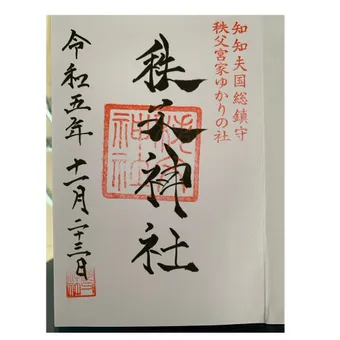 知知夫国総鎮守
秩父宮家ゆかりの社
秩父神社
令和五年十一月二十三日